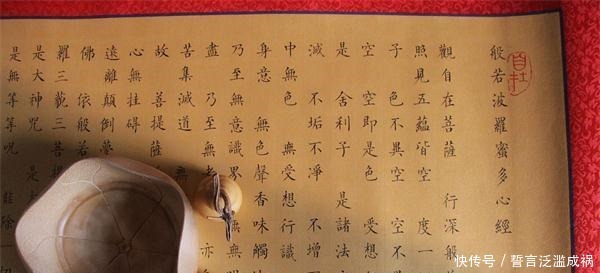 般若波羅蜜多心經
觀自在菩薩 行深般
照見五蘊皆空 度一
子 色不異空 空不
空 空即是色 受想
是 舍利子 是諸法
滅 不垢不淨 不增
中無色 無受想行識
身意 無色聲香味觸
乃至無意識界 無無
盡 乃至無老 亦
苦集滅道 無
故 菩提薩
心無挂礙
遠離顛倒夢
佛 依般若
羅三藐三菩提
是大神咒 是大
是無等等呪 能除一
快传号 / 誓言泛滥成祸